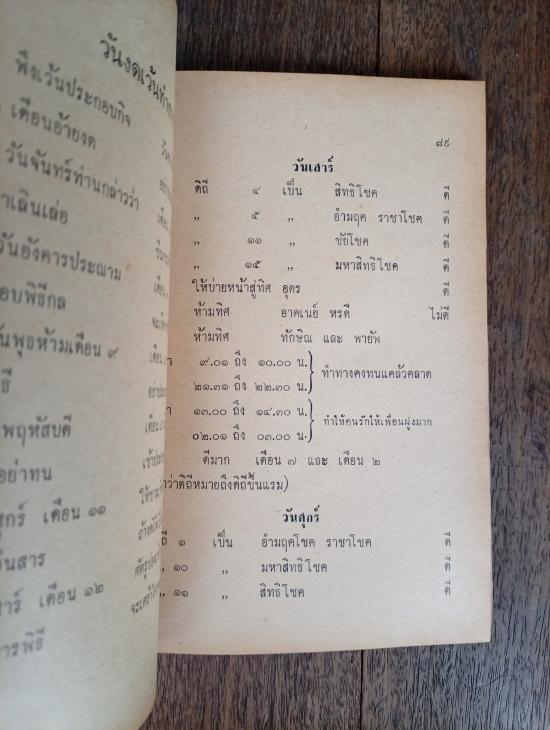 วันงดเว้นทำ
พึงเว้นประกอบกิจ
เดือนอ้ายงด
วันจันทร์ท่านกล่าวว่า
าเลินเล่อ
วันอังคารประณาม
อบพิธีกล
ันพุธห้ามเดือน ๙
ธี
พฤหัสบดี
อย่าทน
ุกร์ เดือน ๑๑
ันสาร
าร์ เดือน ๑๒
ารพิธี
๘๙
วันเสาร์
ดิถี ๔ เป็น สิทธิโชค ดี
„ ๕ „ อำมฤค ราชาโชค ดี
„ ๑๑ „ ชัยโชค ดี
„ ๑๕ „ มหาสิทธิโชค ดี
ให้บ่ายหน้าสู่ทิศ อุดร ดี
ห้ามทิศ อาคเนย์ หรดี ไม่ดี
ห้ามทิศ ทักษิณ และ พายัพ
๙.๐๑ ถึง ๑๐.๐๐ น.
๒๑.๓๑ ถึง ๒๒.๓๐ น. ทำทางคงทนแคล้วคลาด
๑๓.๐๐ ถึง ๑๔.๓๐ น.
๐๒.๐๑ ถึง ๐๓.๐๐ น. ทำให้คนรักให้เพื่อนฝูงมาก
ดีมาก เดือน ๗ และ เดือน ๒
ว่าดิถีหมายถึงดิถีขึ้นแรม)
วันสุกร์
ถี ๑ เป็น อำมฤคโชค ราชาโชค ดี
„ ๑๐ „ มหาสิทธิโชค ดี
„ ๑๑ „ สิทธิโชค ดี